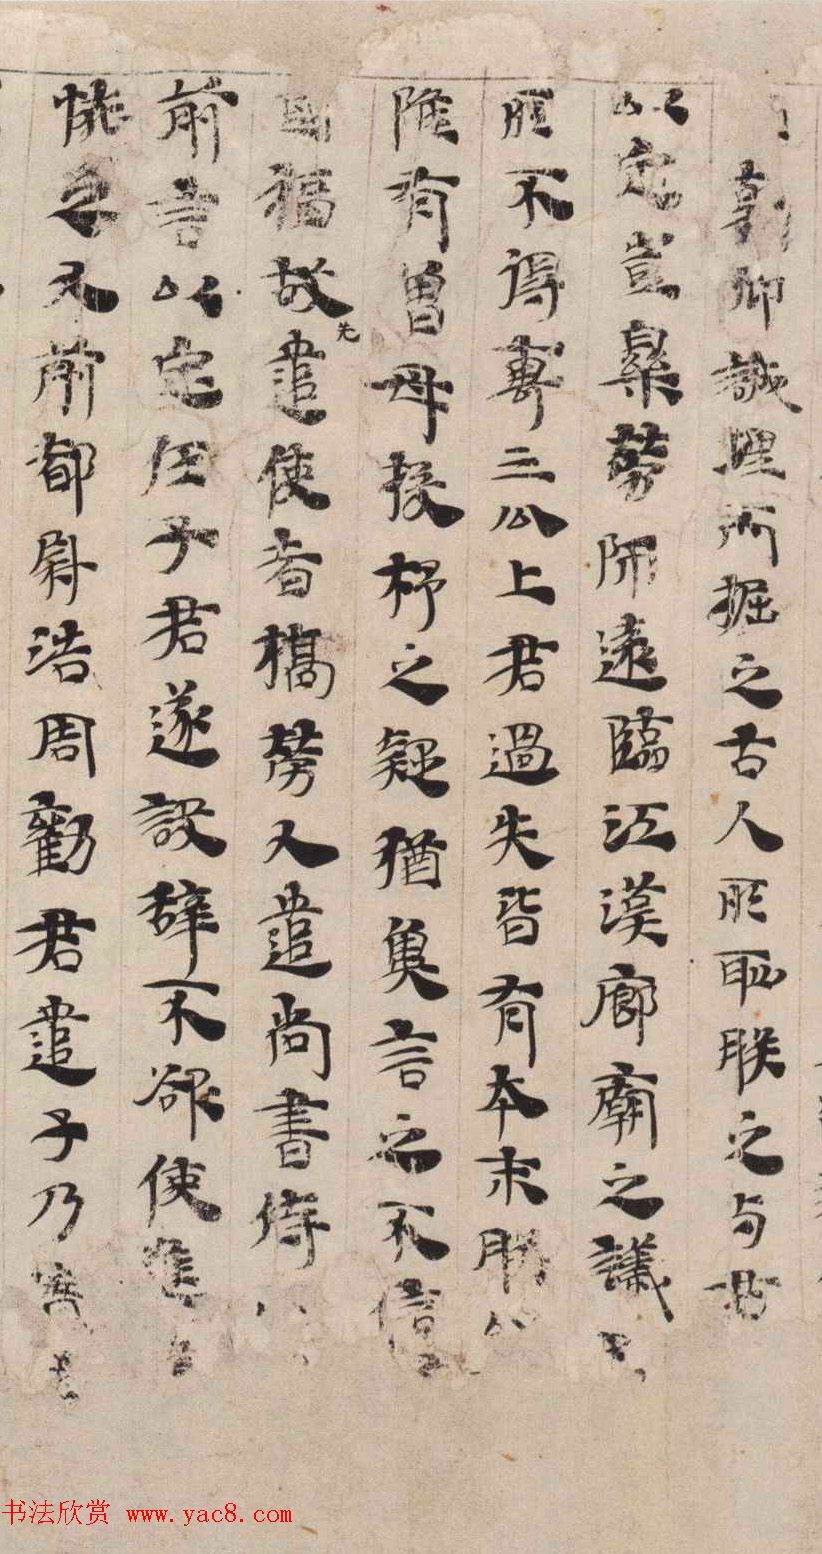 仰誠埋而掘之古人所恥朕之与君
以定豈樂勞師遠臨江漢廊廟之議
所不得專三公上君過失皆有本末朕以
雖有曾母投杼之疑猶冀言之不信
國福故先遣使者槁勞又遣尚書侍
前言以定任子君遂設辭不欲使進
恠之又前都尉浩周勸君遣子乃實
书法欣赏 www.yac8.com